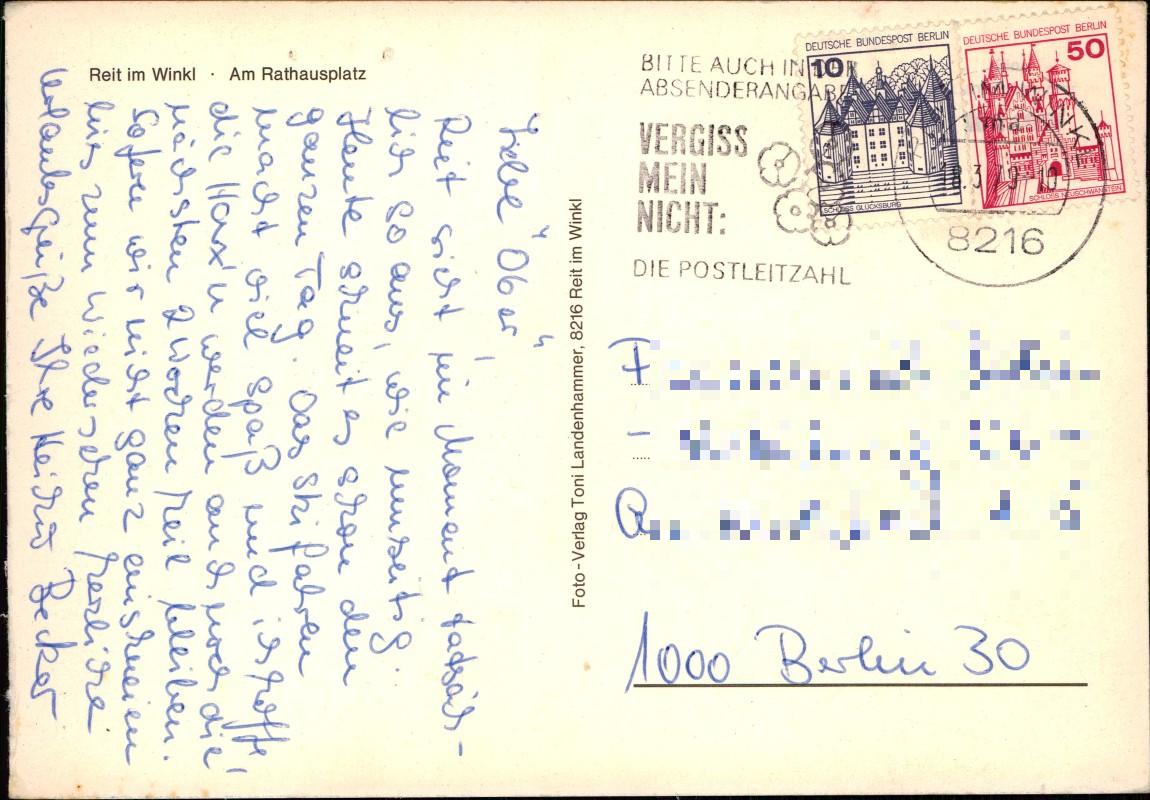 Reit im Winkl · Am Rathausplatz
Liebe "Ober"
Reit sieht im Moment tatsäch-
lich so aus, wie umseitig.
Heute schneit es schon den
ganzen Tag. Das Skifahren
macht viel Spaß und ich hoffe
die Hax'n werden auch noch die
nächsten 2 Wochen heil bleiben.
Sofern wir nicht ganz einschneien
bis zum Wiedersehen herzliche
Urlaubsgrüße Ihre Heidrun Becker
Foto - Verlag Toni Landenhammer, 8216 Reit im Winkl
BITTE AUCH IN DER
ABSENDERANGABE
VERGISS
MEIN
NICHT:
DIE POSTLEITZAHL
DEUTSCHE BUNDESPOST BERLIN
10
SCHLOSS GLÜCKSBURG
DEUTSCHE BUNDESPOST BERLIN
50
SCHLOSS NEUSCHWANSTEIN
8216
1000 Berlin 30